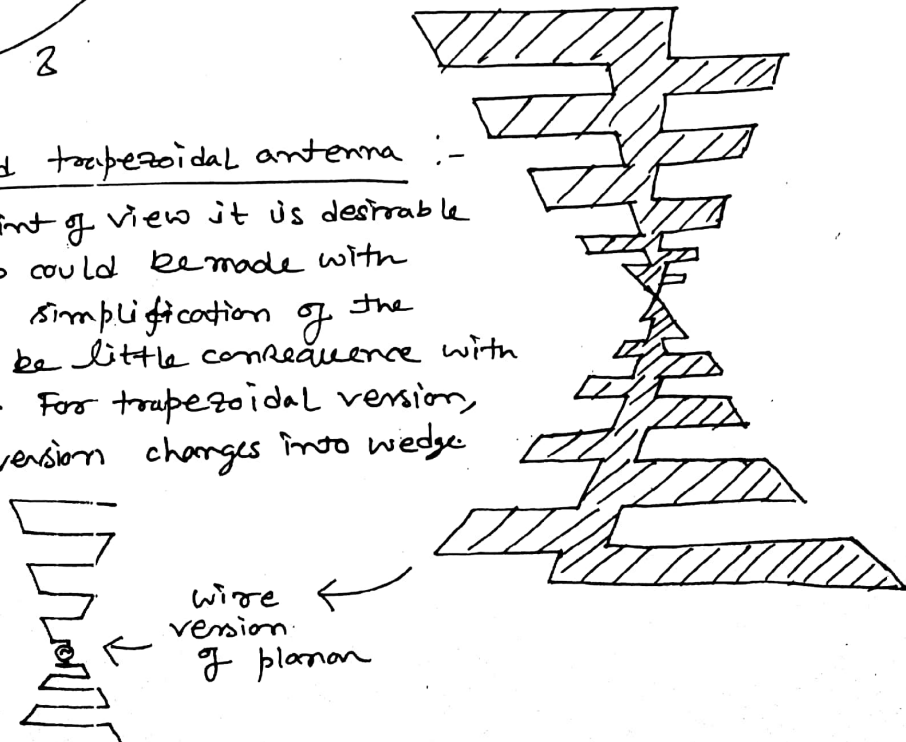 trapezoidal antenna :-
int of view it is desirable
could be made with
simplification of the
be little consequence with
. For trapezoidal version,
version changes into wedge
wire
version
of planar